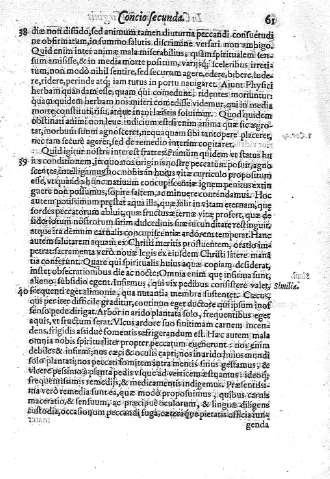 Concio secunda. 61
38 diæ non diffido, sed animum tamen diuturna peccandi consuetudi
ne obfirmatum, in summo salutis discrimine versari non ambigo.
Quid enim inter animæ mala miserabilius, quàm spiritualem sen-
sum amisisse, & in media morte positum, varijsque sceleribus irreti-
tum, non modò nihil sentire, sed securum agere, edere, bibere, lude-
re, ridere, perinde atque iam tutus in portu nauigaret. Aiunt Physici
herbam quandam esse, quam qui comedunt, ridentes moriuntur:
quam quidem herbam nos miseri comedisse videmur, qui in media
morte constituti
obstinati animi
tur, morbum suum agnosceret, nequaquam sibi tantopere placeret,
nec tam securè ageret, sed de remedio interim cogitaret.
Quid igitur nostra interest fratres? Primùm quidem vt status hu
39 ius conditionem, in quo nos origin is nostræ peccatum posuit, agno
scentes, intelligamus hoc nobis in huius vitæ curriculo propositum
esse, vt quando hunc natiuum concupiscentiæ ignem penitus extin
guere non possumus, id quod in nobis
autem potissimùm præstat aqua illa, quæ salit in vitam æternam, quæ
sordes peccatorum abluit, quæ fructus æternæ vitæ profert, quæ de
nique totius nostram sitim dulcedinis suæ iucunditate restinguit,
atque ita demùm carnalis concupiscentiæ ardorem temperat. Hanc
autem salutarem aquam ex Christi meritis profluentem, oratio im-
petrat: sacramenta verò nouæ legis ex eiusdem Christi latere mana
tia conferunt. Quare qui spiritualis huius aquæ copiam desiderat,
instet obsecrationibus die ac nocte. Omnia enim quæ infirma sunt,
alieno subsidio egent. Infirmus, qui vix pedibus consistere valet, Simil.
40 frequenti eget alimonia, qua nutantia membra sustentet. Cæcus, Similia.
qui per iter difficile graditur, continuo eget ductore qui ipsum inof
fenso pede dirigat. Arbor in arido plantata solo, frequentibus eget
aquis, vt fructum ferat. Vlcus ardore suo finitimam carnem incen
dens, frigidis assiduè fomentis refrigerandum est. Hæc autem mala
omnia nobis spiritualiter propter peccatum euenerunt: nos enim
debiles & infirmi; nos cæci & oculis capti; nos in arido huius mundi
solo plantati; nos peccati fomitem intra mentis sinus gestamus, &
vlcere pessimo à planta pedis vsque ad verticem æstuamus: ideoque
frequentissimis remedijs, & medicamentis indigemus. Præsentissi-
ma verò remedia sunt ea, quæ modò proposuimus, quibus carnis
maceratio, & sensuum, ac præcipuè oculorum, & linguæ diligens
custodia, occasionum peccandi fuga, cæteraque pietatis officia iun-
genda